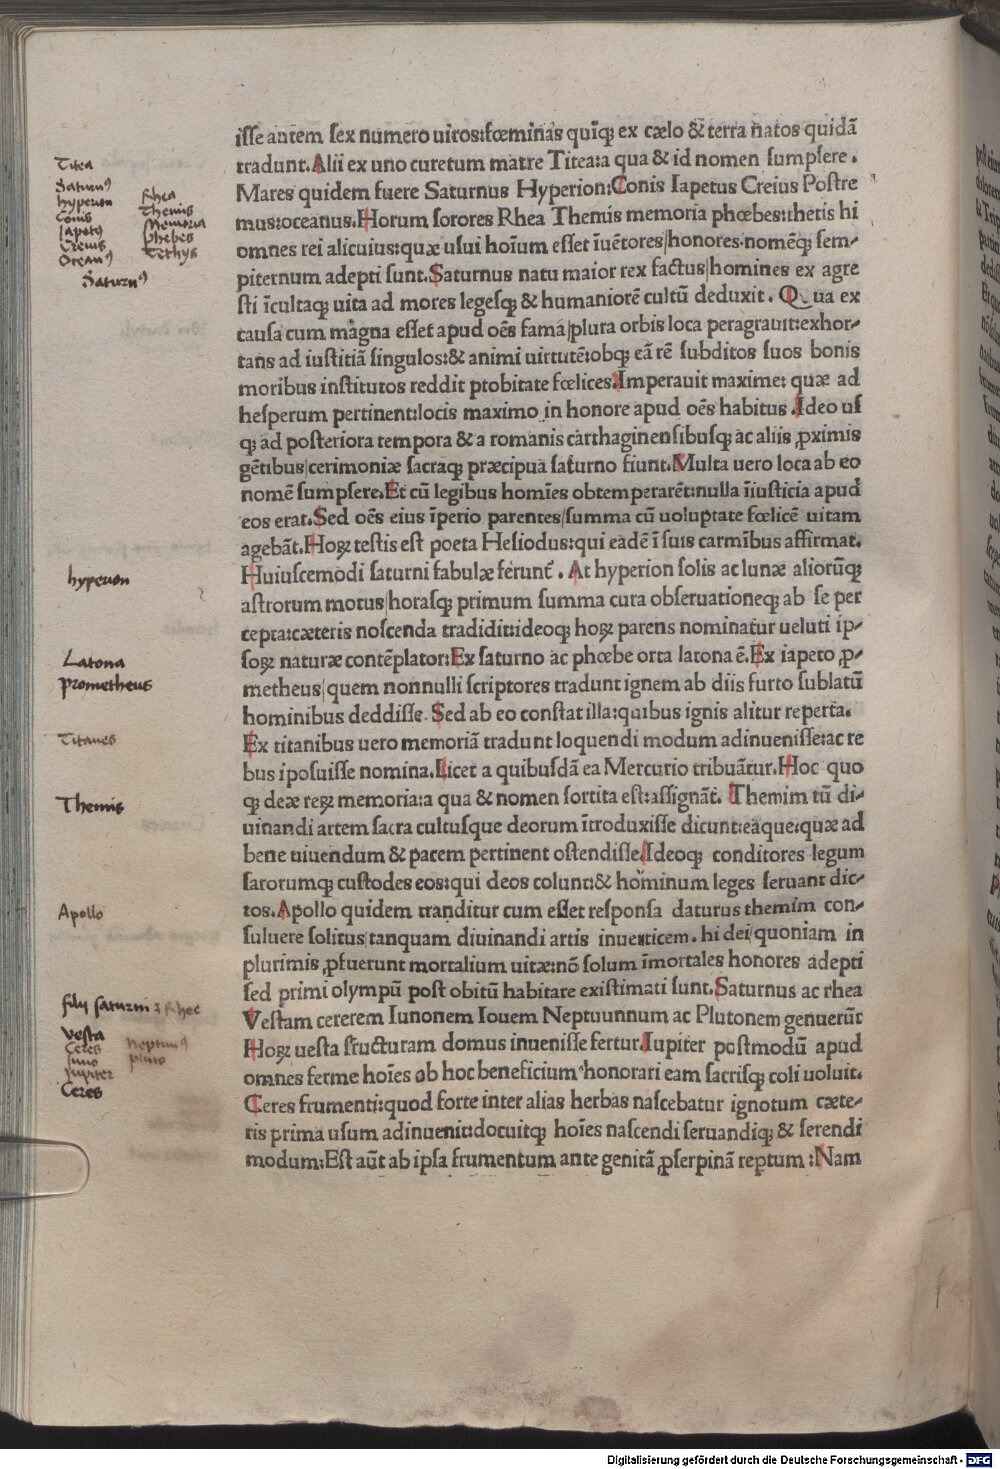 iſſe autem ſex numero uiros:fœminas quīq; ex cælo & terra natos quidā
tradunt.Alii ex uno curetum matre Titea:a qua & id nomen ſumpſere.
Mares quidem fuere Saturnus Hyperion:Conis Iapetus Creius Poſtre
mus:oceanus.Horum ſorores Rhea Themis memoria phœbes:thetis hi
omnes rei alicuius:quæ uſui hoīum eſſet īuētores/honores nomēq; ſem-
piternum adepti ſunt.Saturnus natu maior rex factus/homines ex agre
ſti īcultaq; uita ad mores legeſq; & humaniorē cultū deduxit. Qua ex
cauſa cum magna eſſet apud oēs fama/plura orbis loca peragrauit:exhor-
tans ad iuſtitiā ſingulos:& animi uirtutē:obq; eā rē ſubditos ſuos bonis
moribus inſtitutos reddit probitate fœlices.Imperauit maxime: quæ ad
heſperum pertinent:locis maximo in honore apud oēs habitus.Ideo uſ
q; ad poſteriora tempora & a romanis carthaginenſibuſq; ac aliis ꝓximis
gētibus/cerimoniæ ſacraq; præcipua ſaturno fiunt.Multa uero loca ab eo
nomē ſumpſere.Et cū legibus homīes obtemperarēt:nulla īiuſticia apud
eos erat.Sed oēs eius īperio parentes/ſumma cū uoluptate fœlicē uitam
agebāt.Hoꝝ teſtis eſt poeta Heſiodus:qui eadē ī ſuis carmībus affirmat.
Huiuſcemodi ſaturni fabulæ ferunt̄. At hyperion ſolis ac lunæ aliorūq;
aſtrorum motus/horaſq; primum ſumma cura obſeruationeq; ab ſe per
cepta:cæteris noſcenda tradidit:ideoq; hoꝝ parens nominatur ueluti ip-
ſoꝝ naturæ contēplator:Ex ſaturno ac phœbe orta latona ē.Ex iapeto ꝓ-
metheus/quem nonnulli ſcriptores tradunt ignem ab diis furto ſublatū
hominibus deddiſſe. Sed ab eo conſtat illa:quibus ignis alitur reperta.
Ex titanibus uero memoriā tradunt loquendi modum adinueniſſe:ac re
bus īpoſuiſſe nomina.Licet a quibuſdā ea Mercurio tribuātur.Hoc quo
q; deæ reꝝ memoria:a qua & nomen ſortita eſt:aſſignāt. Themim tū di-
uinandi artem ſacra cultuſque deorum ītroduxiſſe dicunt:eaque:quæ ad
bene uiuendum & pacem pertinent oſtendiſſe.Ideoq; conditores legum
ſarorumq; cuſtodes eos:qui deos colunt:& hominum leges ſeruant dic-
tos.Apollo quidem tranditur cum eſſet reſponſa daturus themim con-
ſuluere ſolitus/tanquam diuinandi artis inuenticem. hi dei/quoniam in
plurimis ꝓfuerunt mortalium uitæ:nō ſolum īmortales honores adepti
ſed primi olympū poſt obitū habitare exiſtimati ſunt.Saturnus ac rhea
Veſtam cererem Iunonem Iouem Neptuunnum ac Plutonem genuerūt
Hoꝝ ueſta ſtructuram domus inueniſſe fertur.Iupiter poſtmodū apud
omnes ferme hoīes ob hoc beneficium honorari eam ſacriſq; coli uoluit.
Ceres frumenti:quod forte inter alias herbas naſcebatur ignotum cæte-
ris prima uſum adinuenit:docuitq; hoīes naſcendi ſeruandiq; & ferendi
modum:Eſt aūt ab ipſa frumentum ante genitā ꝓſerpinā reptum:Nam
Titea
Saturn⁹
hyperion
Conis
Iapet⁹
Creius
Ocean⁹
Rhea
Themis
Memoria
phebes
Tethys
Saturn⁹
hyperion
Latona
Prometheus
Titanes
Themis
Apollo
filij saturni & Rhee
Vesta
Ceres
Juno
Jupiter
neptun⁹
pluto
Ceres
Digitalisierung gefördert durch die Deutsche Forschungsgemeinschaft - DFG